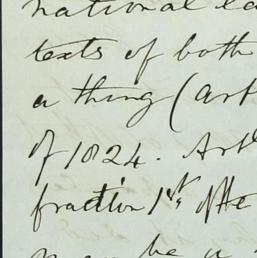 national la
texts of both
a thing (art
of 1824. Art
fraction 1st, of the
may be a